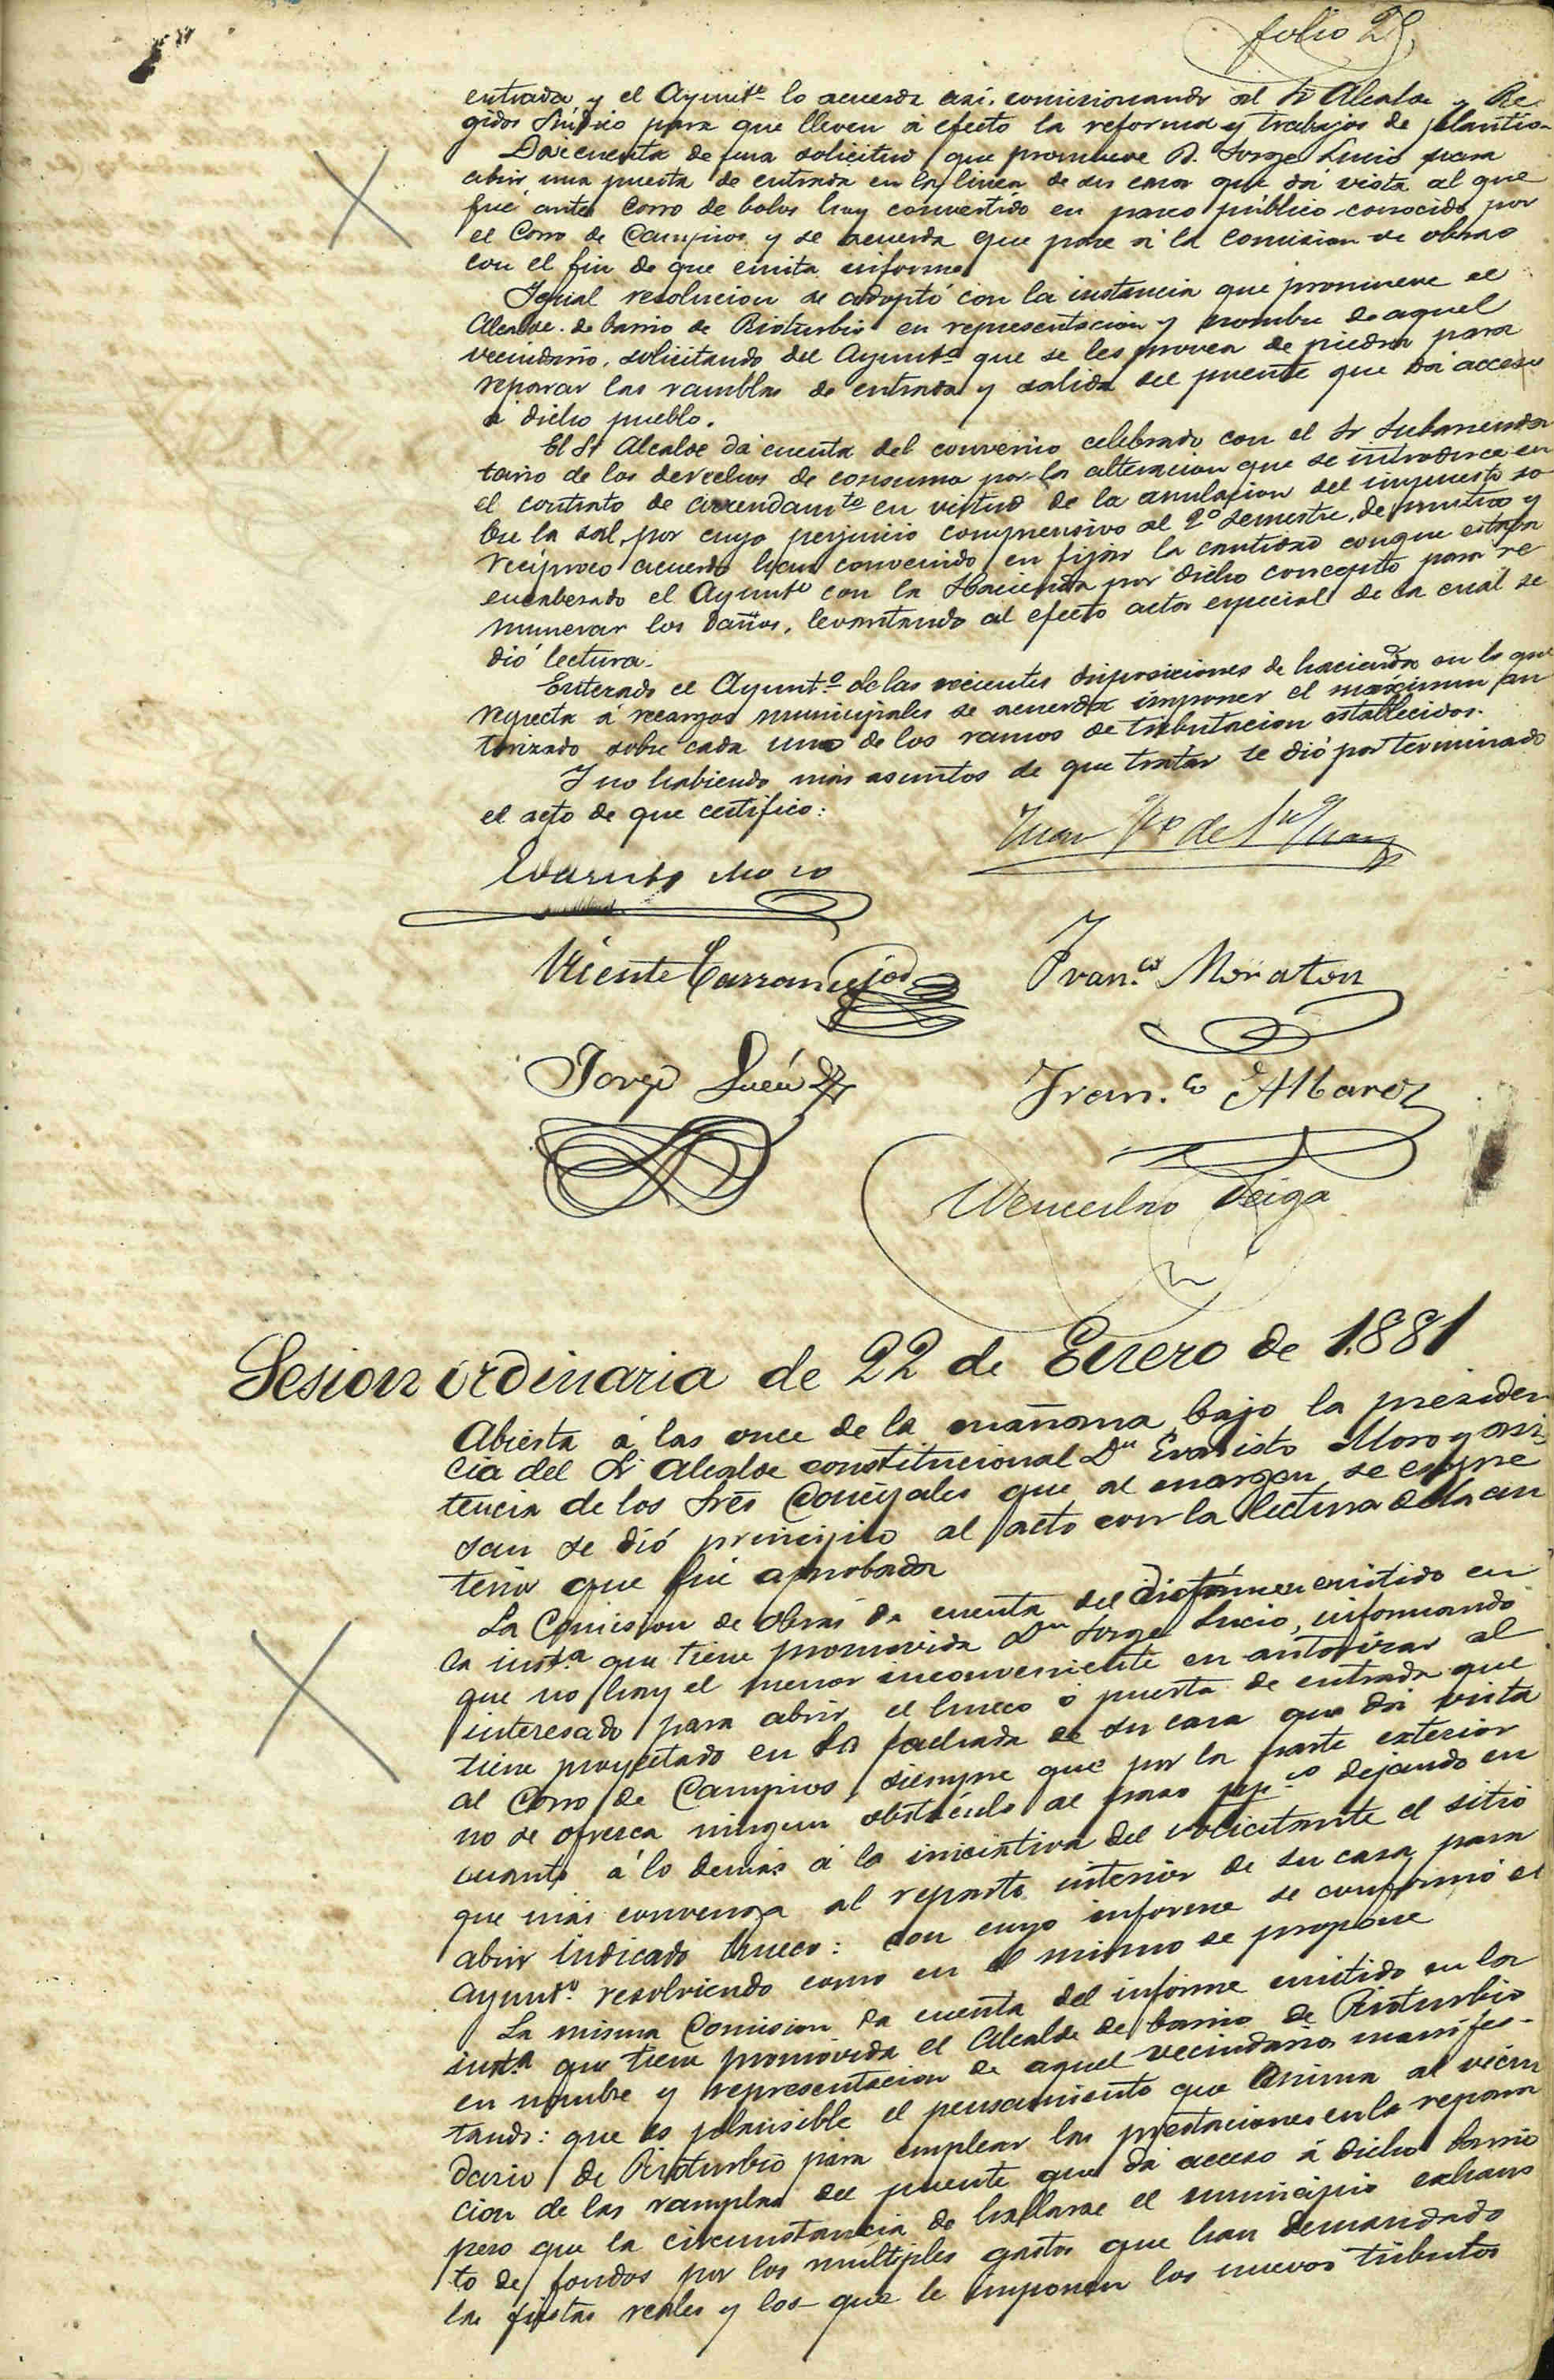 folio 25
entrada, y el Ayunt.º lo acuerda así, comisionando al Sr Alcalde y Re-
gidor Síndico para que lleven á efecto la reforma y trabajos de plantío.
Dase cuenta de una solicitud que promueve D. Jorge Lucio para
abrir una puerta de entrada en la linea de su casa que dá vista al que
fué antes Corro de bolos hoy convertido en paseo público conocido por
el Corro de Campios y se acuerda que pase á la Comision de obras
con el fin de que emita informe.
Igual resolucion se adoptó con la instancia que promueve el
Alcalde de barrio de Rioturbio en representacion y nombre de aquel
vecindario, solicitando del Ayunt.º que se les provea de piedra para
reparar las ramblas de entrada y salida del puente que dá acceso
á dicho pueblo.
El Sr Alcalde dá cuenta del convenio celebrado con el Sr Subarrenda
tario de los derechos de consumo por la alteracion que se introduce en
el contrato de arrendam.to en virtud de la anulacion del impuesto so-
bre la sal, por cuyo perjuicio comprensivo al 2º semestre, de mutuo y
recíproco acuerdo han convenido en fijar la cantidad conque estaba
encabezado el Ayunt.º con la Hacienda por dicho concepto para re
munerar los daños, levantando al efecto acta especial de la cual se
dió lectura.
Enterado el Ayunt.º de las recientes disposiciones de hacienda en lo que
respecta á recargos municipales se acuerda imponer el máximum au
torizado sobre cada uno de los ramos de tributacion establecidos.
Y no habiendo más asuntos de que tratar se dió por terminado
el acto de que certifico:
Evaristo Moro
Juan de
Vicente Carrancejas
Fran.co Moraton
Jorge Lucio
Fran.co Albarez
Wenceslao Veiga
Sesion ordinaria de 22 de Enero de 1.881
Abierta á las once de la mañana bajo la presiden
cia del Sr Alcalde constitucional Dn Evaristo Moro y asis
tencia de los Sres Concejales que al margen se expre
san se dió principio al acto con la lectura de la an
terior que fué aprobada
La Comision de obras da cuenta del dictámen emitido en
la inst.a que tiene promovida Dn Jorge Lucio, informando
que no hay el menor inconveniente en autorizar al
interesado para abrir el hueco ó puerta de entrada que
tiene proyectado en la fachada de su casa que dá vista
al Corro de Campios, siempre que por la parte exterior
no se ofrezca ningun obstáculo al paso pp.co dejando en
cuanto á lo demás á la iniciativa del solicitante el sitio
que más convenga al reparto interior de su casa para
abrir indicado hueco: con cuyo informe se conformó el
Ayunt.º resolviendo como en el mismo se propone
La misma Comision da cuenta del informe emitido en la
inst.a que tiene promovida el Alcalde de barrio de Rioturbio
en nombre y representacion de aquel vecindario, manifes-
tando: que es plausible el pensamiento que anima al vecin
dario de Rioturbio para emplear las prestaciones en la repara
cion de las ramplas del puente que dá acceso á dicho barrio
pero que la circunstancia de hallarse el municipio exhaus
to de fondos por los múltiples gastos que han demandado
las fiestas reales y los que le imponen los nuevos tributos